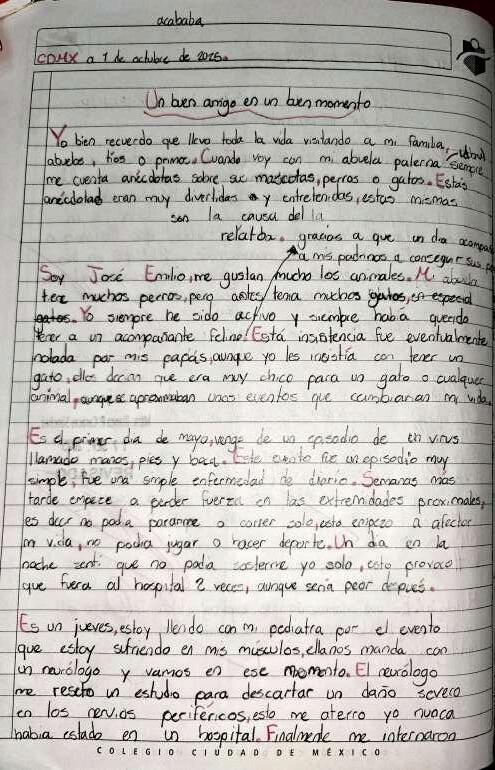 acababa
CDMX a 1 de octubre de 2025.
Un buen amigo en un buen momento
Yo bien recuerdo que llevo toda la vida visitando a mi familia,
abuelos, tíos o primos. Cuando voy con mi abuela paterna siempre
me cuenta anécdotas sobre sus mascotas, perros o gatos. Estas
anécdotas eran muy divertidas y entretenidas, estas mismas
son la causa del
relato. gracias a que un día
a mis padrinos a conseguir sus
Soy José Emilio, me gustan mucho los animales. Mi abuela
muchos perros, pero antes tenía muchos gatos, en especial
gatos. Yo siempre he sido activo y siempre había querido
tener a un acompañante felino. Está insistencia fue eventualmente
notada por mis papás, aunque yo les insistía con tener un
gato, ellos decían que era muy chico para un gato o cualquier
animal, aunque se aproximaban unos eventos que cambiarían mi vida.
Es el primer día de mayo, vengo de un episodio de un virus
llamado manos, pies y boca. Este evento fue un episodio muy
simple, fue una simple enfermedad de diario. Semanas más
tarde empece a perder fuerza en las extremidades proximales,
es decir no podía pararme o correr solo, esto empezó a afectar
mi vida, no podía jugar o hacer deporte. Un día en la
noche sentí que no podía sosterme yo solo, esto provocó
que fuera al hospital 2 veces, aunque sería peor después.
Es un jueves, estoy llendo con mi pediatra por el evento
que estoy sufriendo en mis músculos, ella nos manda con
un neurólogo y vamos en ese momento. El neurólogo
me reseto un estudio para descartar un daño severo
en los nervios periféricos, esto me aterro yo nunca
había estado en un hospital. Finalmente me internaron
COLEGIO CIUDAD DE MÉXICO